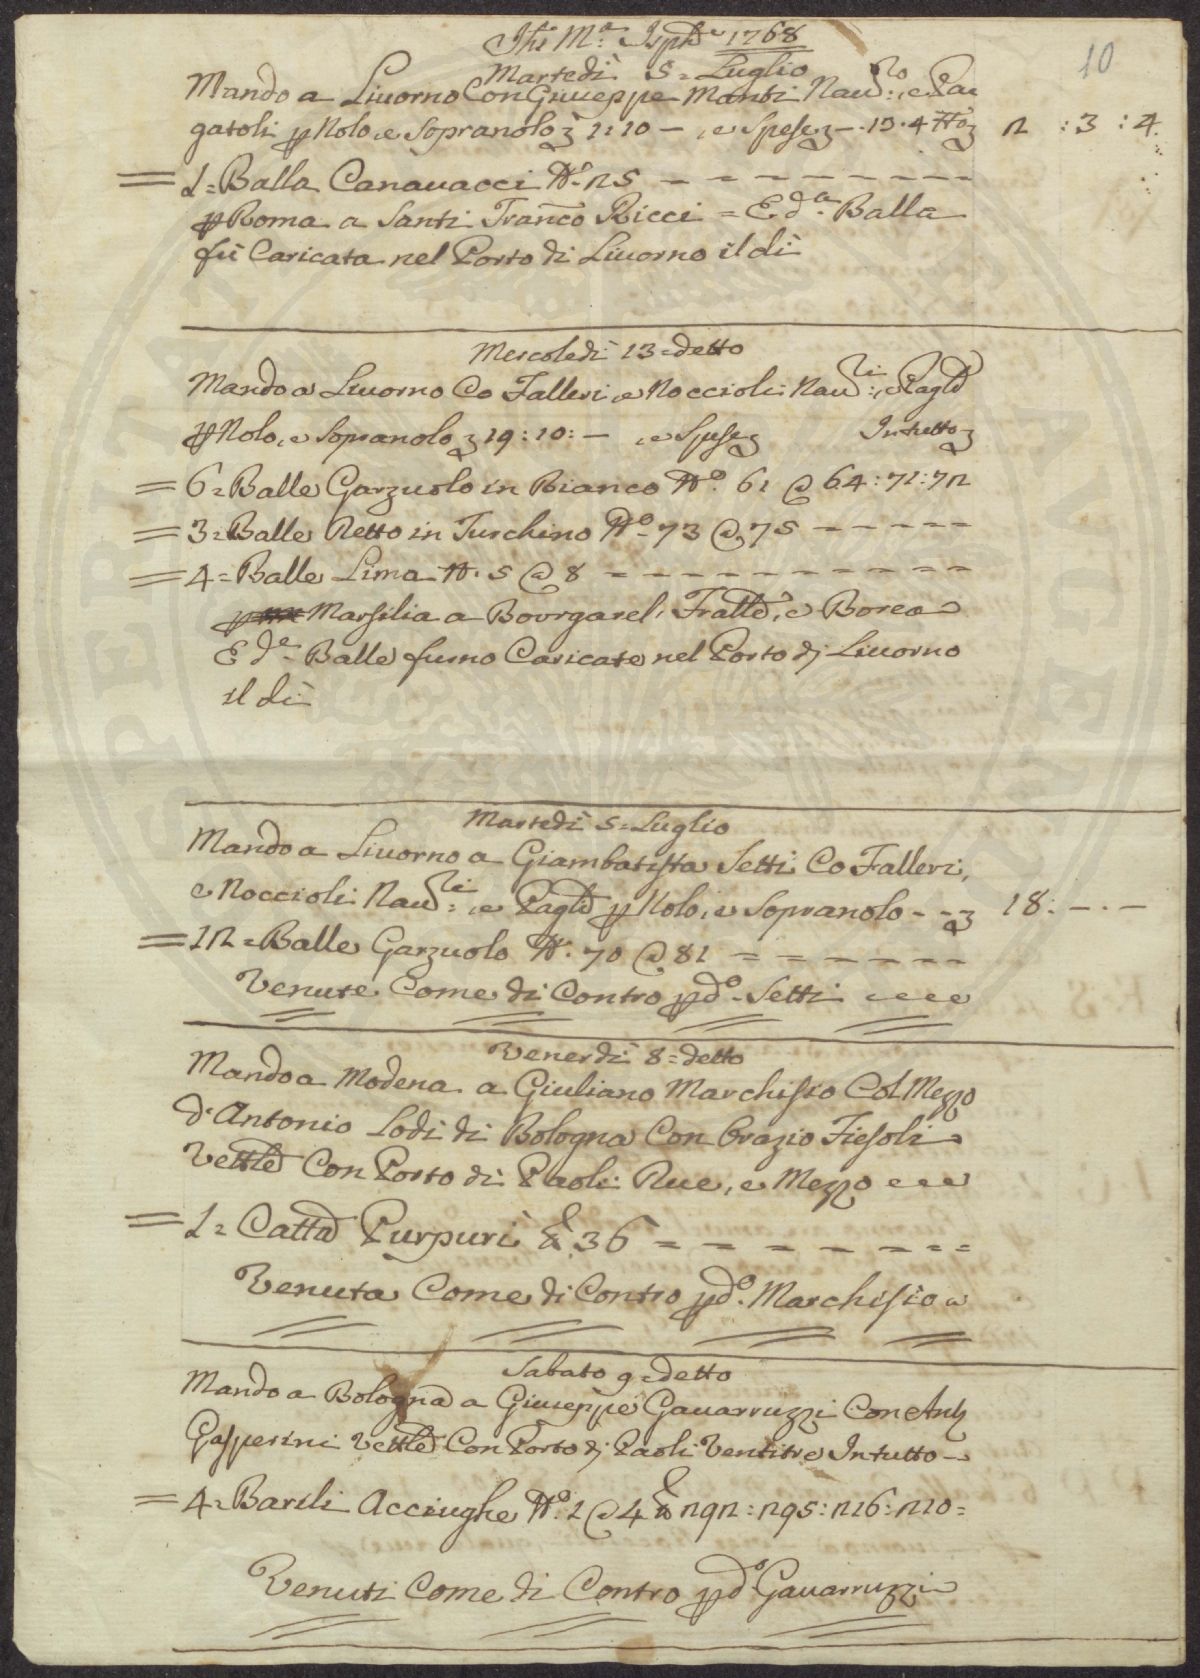 Jhs M.ª Jsph.e 1768
10
Martedì 5 = Luglio
Mando a Liuorno Con Giuseppe Manti Nau.ro, e Pa
gatoli p Nolo, e Sopranolo 1:10 — , e Spese — .13.4 2 : 3 : 4
= 1 = Balla Canauacci N.º 25 — — — — — — — —
p Roma a Santi Franco Ricci = E d.ª Balla
fù Caricata nel Porto di Liuorno il dì
Mercoledì 13 = detto
Mando a Liuorno Co Falleri, e Noccioli Nau.ri, e Pagti
p Nolo, e Sopranolo 19:10:— , e Spese In tutto
= 6 = Balle Garzuolo in Bianco N.º 61 @ 64:71:72
= 3 = Balle Netto in Turchino N.º 73 @ 75 — — — — —
= 4 = Balle Lima N. 5 @ 8 — — — — — — — — — —
Marsilia a Bovrgarel, Fratti, e Borea
E d.e Balle furno Caricate nel Porto di Liuorno
il dì
Martedì 5 = Luglio
Mando a Liuorno a Giambatista Setti Co Falleri,
e Noccioli Nau.ri, e Pagti p Nolo, e Sopranolo - - 18:—.—
= 12 = Balle Garzuolo N. 70 @ 81 = = — — — — —
Venute Come di Contro p d.º Setti
Venerdì 8 = detto
Mando a Modena a Giuliano Marchisio Col Mezzo
d'Antonio Lodi di Bologna Con Orazio Fiesoli
Vettle Con Porto di Paoli Due, e Mezzo
= 1 = Catta Purpuri £ 36 = = — — — — = =
Venuta Come di Contro p d.º Marchisio
Sabato 9 = detto
Mando a Bologna a Giuseppe Gauarruzzi Con Ant.
Gasperini Vettle Con Porto di Paoli Ventitre In tutto —
= 4 = Barili Acciughe N.º 1 @ 4 £ 292:295:216:210 =
Venuti Come di Contro p d.º Gauarruzzi